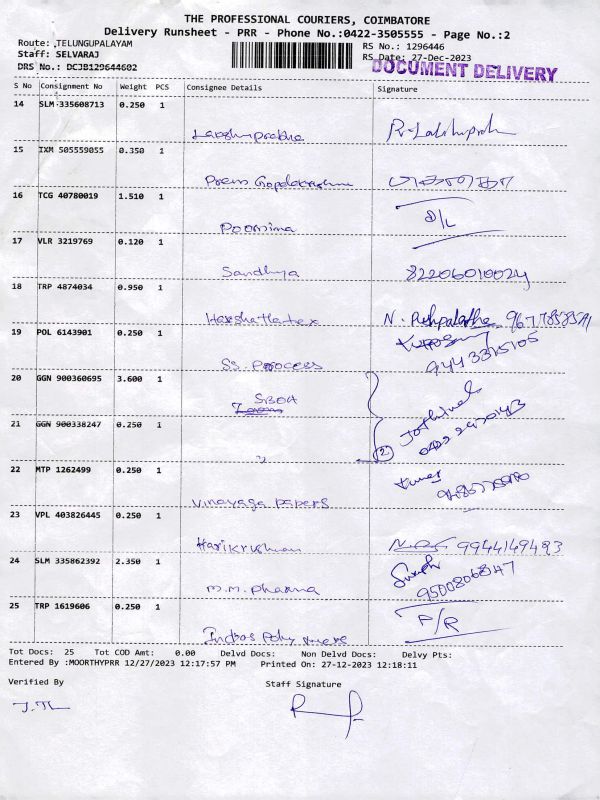 THE PROFESSIONAL COURIERS, COIMBATORE
Delivery Runsheet - PRR - Phone No.:0422-3505555 - Page No.:2
Route: TELUNGUPALAYAM
RS No.: 1296446
Staff: SELVARAJ
RS Date: 27-Dec-2023
DRS No.: DCJB129644602
DOCUMENT DELIVERY
S No Consignment No Weight PCS Consignee Details Signature
14 SLM 335608713 0.250 1
Lakshmiprabha
15 IXM 505559055 0.350 1
Prem Gopalakrishnan
16 TCG 40780019 1.510 1
Poornima D/L
17 VLR 3219769 0.120 1
Sandhya 8220601002y
18 TRP 4874034 0.950 1
Harshatatex N. Pushpalatha
19 POL 6143901 0.250 1
SS. Process 9443315105
20 GGN 900360695 3.600 1
SBOA
21 GGN 900338247 0.250 1
" (2)
22 MTP 1262499 0.250 1
Vinayaga papers
23 VPL 403826445 0.250 1
Harikrishnan 9944149493
24 SLM 335862392 2.350 1
M.M. Pharma
25 TRP 1619606 0.250 1
P/R
Tot Docs: 25 Tot COD Amt: 0.00 Delvd Docs: Non Delvd Docs: Delvy Pts:
Entered By :MOORTHYPRR 12/27/2023 12:17:57 PM Printed On: 27-12-2023 12:18:11
Verified By Staff Signature